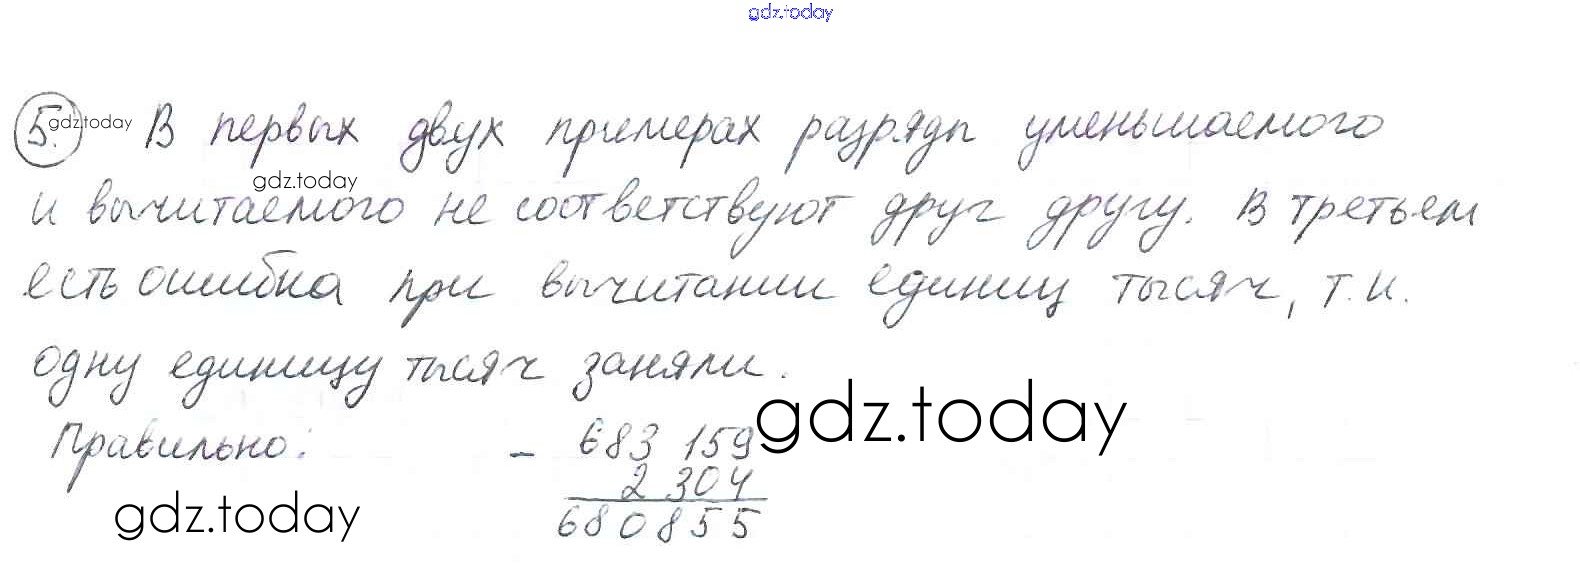 gdz.today
5. gdz.today В первых двух примерах разряды уменьшаемого
gdz.today
и вычитаемого не соответствуют друг другу. В третьем
есть ошибка при вычитании единиц тысяч, т.к.
одну единицу тысяч заняли.
gdz.today
Правильно: - 683 159
2 304
gdz.today
680855